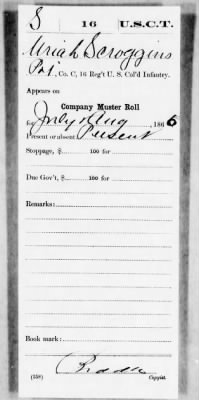 S 16 U.S.C.T.
Uriah Scroggins
Pvt., Co. C, 16 Reg't U. S. Col'd Infantry.
Appears on
Company Muster Roll
for July & Aug, 1865
Present or absent Present
Stoppage, $ 100 for
Due Gov't, $ 100 for
Remarks:
Book mark:
(358) Copyist.